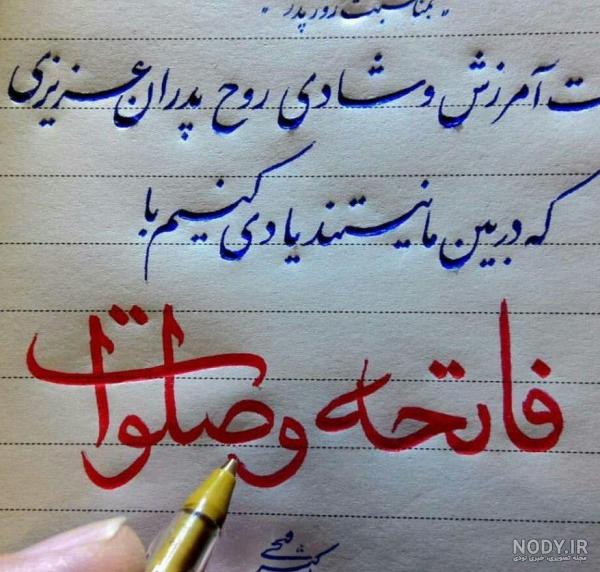 بمناسبت روز پدر
ت آمرزش و شادی روح پدران عزیزی
که در بین ما نیستند یادی کنیم با
فاتحه و صلوات
فتحی
NODY.IR
مجله تصویری، خبری نودی